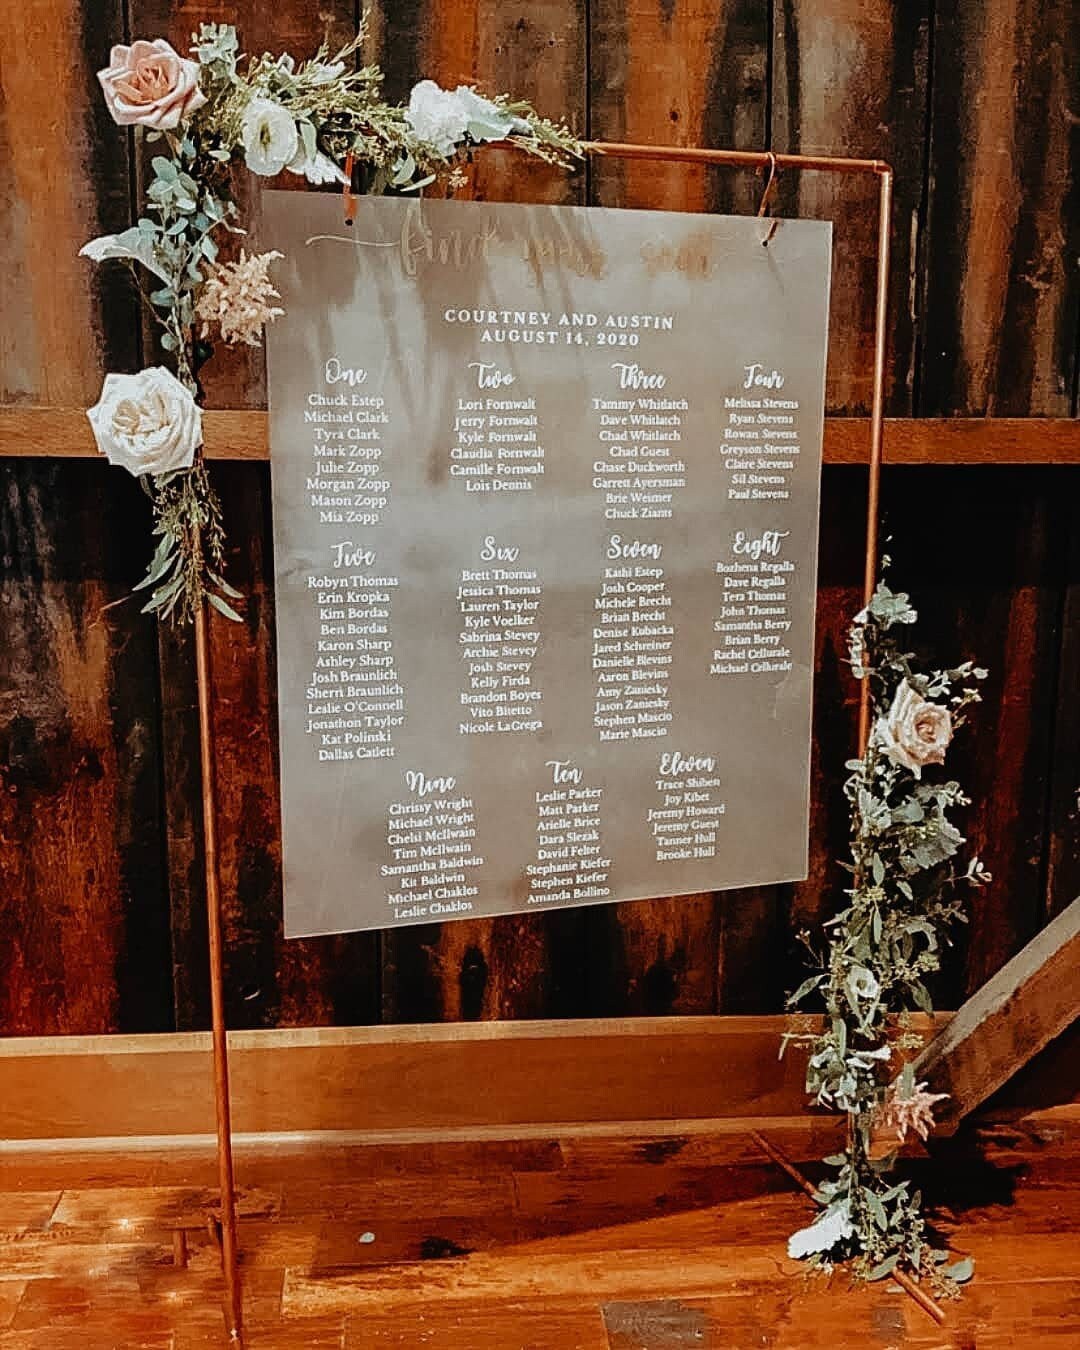 find your seat
COURTNEY AND AUSTIN
AUGUST 14, 2020
One
Chuck Estep
Michael Clark
Tyra Clark
Mark Zopp
Julie Zopp
Morgan Zopp
Mason Zopp
Mia Zopp
Two
Lori Fornwalt
Jerry Fornwalt
Kyle Fornwalt
Claudia Fornwalt
Camille Fornwalt
Lois Dennis
Three
Tammy Whitlatch
Dave Whitlatch
Chad Whitlatch
Chad Guest
Chase Duckworth
Garrett Ayersman
Brie Weimer
Chuck Ziants
Four
Melissa Stevens
Ryan Stevens
Rowan Stevens
Greyson Stevens
Claire Stevens
Sil Stevens
Paul Stevens
Five
Robyn Thomas
Erin Kropka
Kim Bordas
Ben Bordas
Karon Sharp
Ashley Sharp
Josh Braunlich
Sherri Braunlich
Leslie O'Connell
Jonathon Taylor
Kat Polinski
Dallas Catlett
Six
Brett Thomas
Jessica Thomas
Lauren Taylor
Kyle Voelker
Sabrina Stevey
Archie Stevey
Josh Stevey
Kelly Firda
Brandon Boyes
Vito Bitetto
Nicole LaGrega
Seven
Kathi Estep
Josh Cooper
Michele Brecht
Brian Brecht
Denise Kubacka
Jared Schreiner
Danielle Blevins
Aaron Blevins
Amy Zaniesky
Jason Zaniesky
Stephen Mascio
Marie Mascio
Eight
Bozhena Regalla
Dave Regalla
Tera Thomas
John Thomas
Samantha Berry
Brian Berry
Rachel Cellurale
Michael Cellurale
Nine
Chrissy Wright
Michael Wright
Chelsi McIlwain
Tim McIlwain
Samantha Baldwin
Kit Baldwin
Michael Chaklos
Leslie Chaklos
Ten
Leslie Parker
Matt Parker
Arielle Brice
Dara Slezak
David Felter
Stephanie Kiefer
Stephen Kiefer
Amanda Bollino
Eleven
Trace Shiben
Joy Kibet
Jeremy Howard
Jeremy Guest
Tanner Hull
Brooke Hull